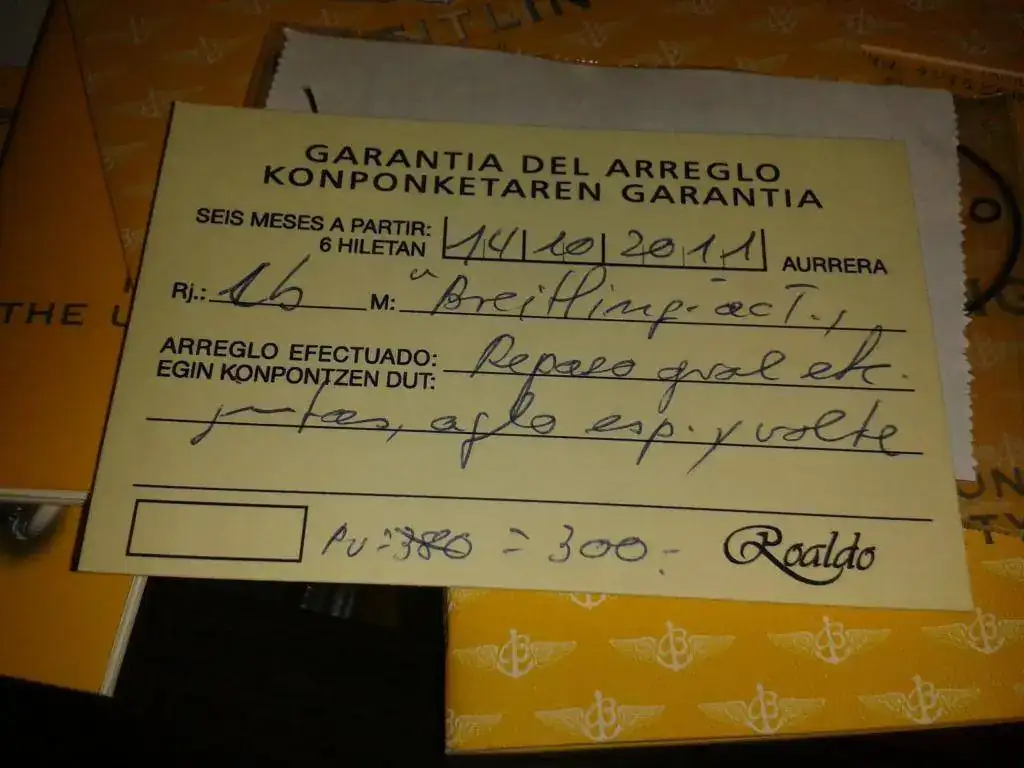 BREITLIN
GARANTIA DEL ARREGLO
KONPONKETAREN GARANTIA
SEIS MESES A PARTIR:
6 HILETAN
14 10 2011 AURRERA
Rj.: 1b M: "Breitling-
ARREGLO EFECTUADO: Repaso gral etc.
EGIN KONPONTZEN DUT:
juntas, aglo esp. y volte
Pv = 380 = 300.-
Roaldo
THE U